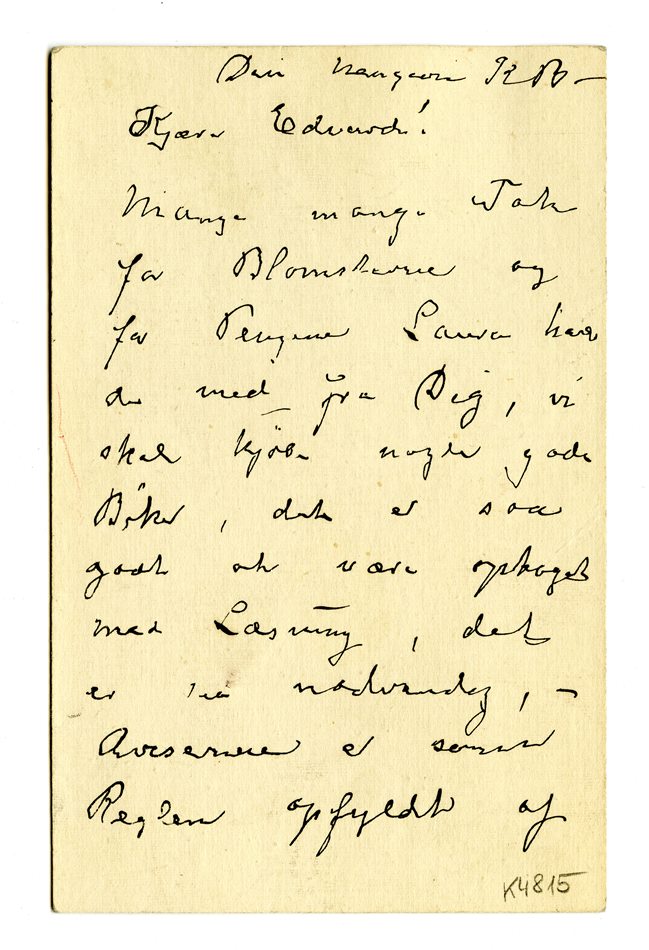 Din hengivne K B –
Kjære Edvard!
Mange mange Tak
for Blomsterne og
for Pengene Laura hade
da med fra Dig, vi
skal kjøbe nogle gode
Bøker, det er saa
godt at være optaget
med Læsning, det
er nødvendig, –
Aviserne er som
Reglen opfyldt af
K4815